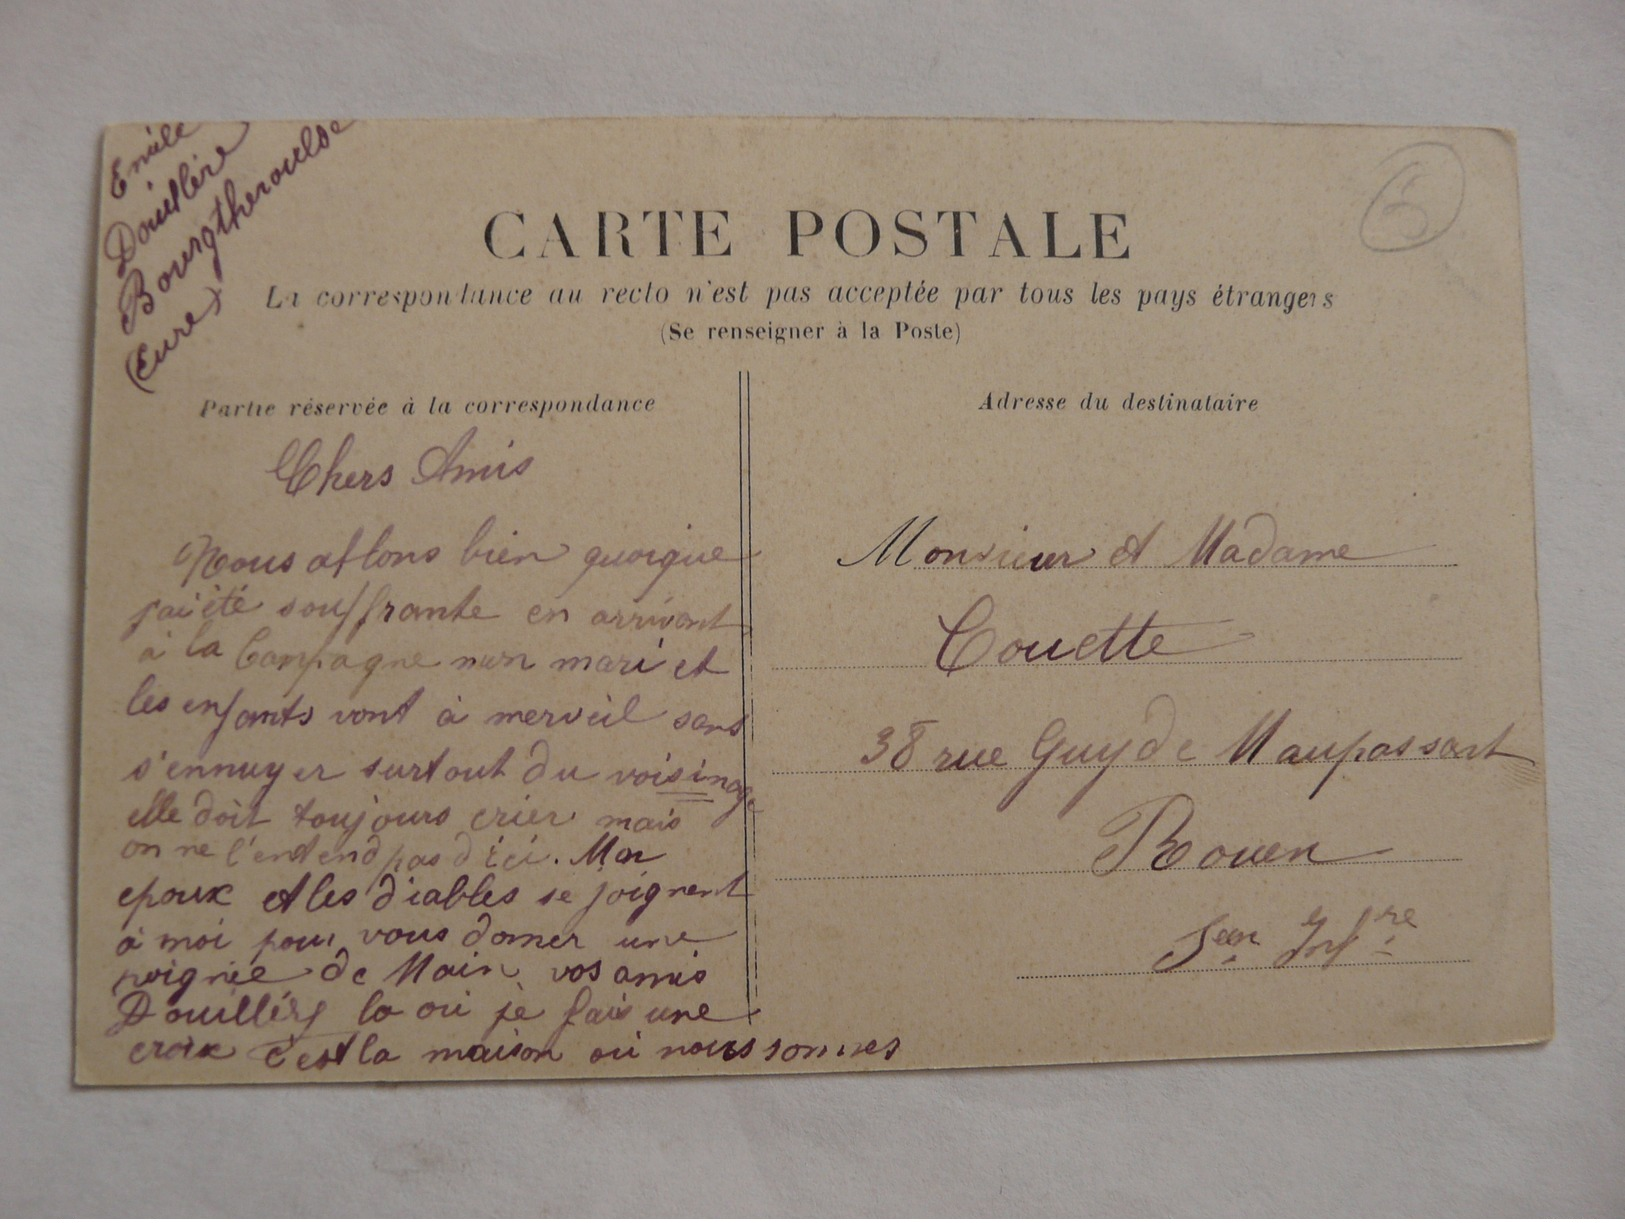 Emile
Douillère
Bourgtheroulde
(Eure)
CARTE POSTALE
La correspondance au recto n'est pas acceptée par tous les pays étrangers
(Se renseigner à la Poste)
Partie réservée à la correspondance
Chers Amis
Nous allons bien quoique
j'ai été souffrante en arrivant
à la Campagne mon mari et
les enfants vont à merveil sans
s'ennuyer surtout du voisinage
elle doit toujours crier mais
on ne l'entend pas d'ici. Mon
epoux et les diables se joignent
à moi pour vous donner une
poignée de Main vos amis
Douillère la où je fais une
croix c'est la maison où nous sommes
Adresse du destinataire
Monsieur et Madame
Couette
38 rue Guy de Maupassant
Rouen
Seine Infre